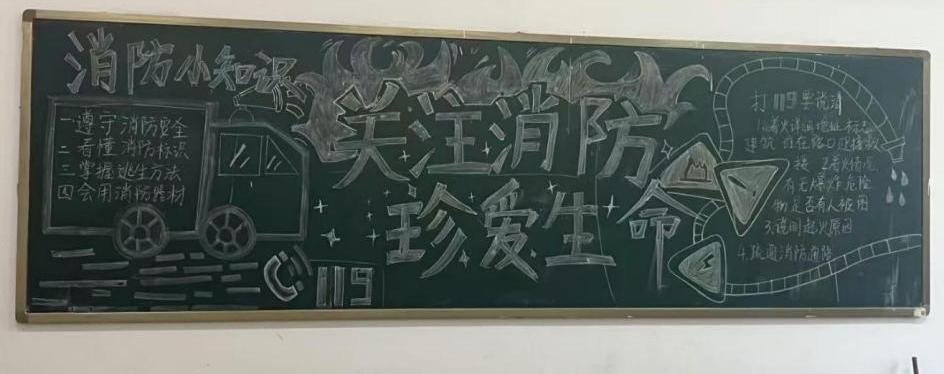 消防小知识
一遵守消防安全
二看懂消防标识
三掌握逃生方法
四会用消防器材
119
关注消防
珍爱生命
打119要说清
1.着火详细地址标志
建筑 且在路口迎接救
援 2.着火情况
有无爆炸危险
物 是否有人被困
3.说明起火原因
4.疏通消防通路